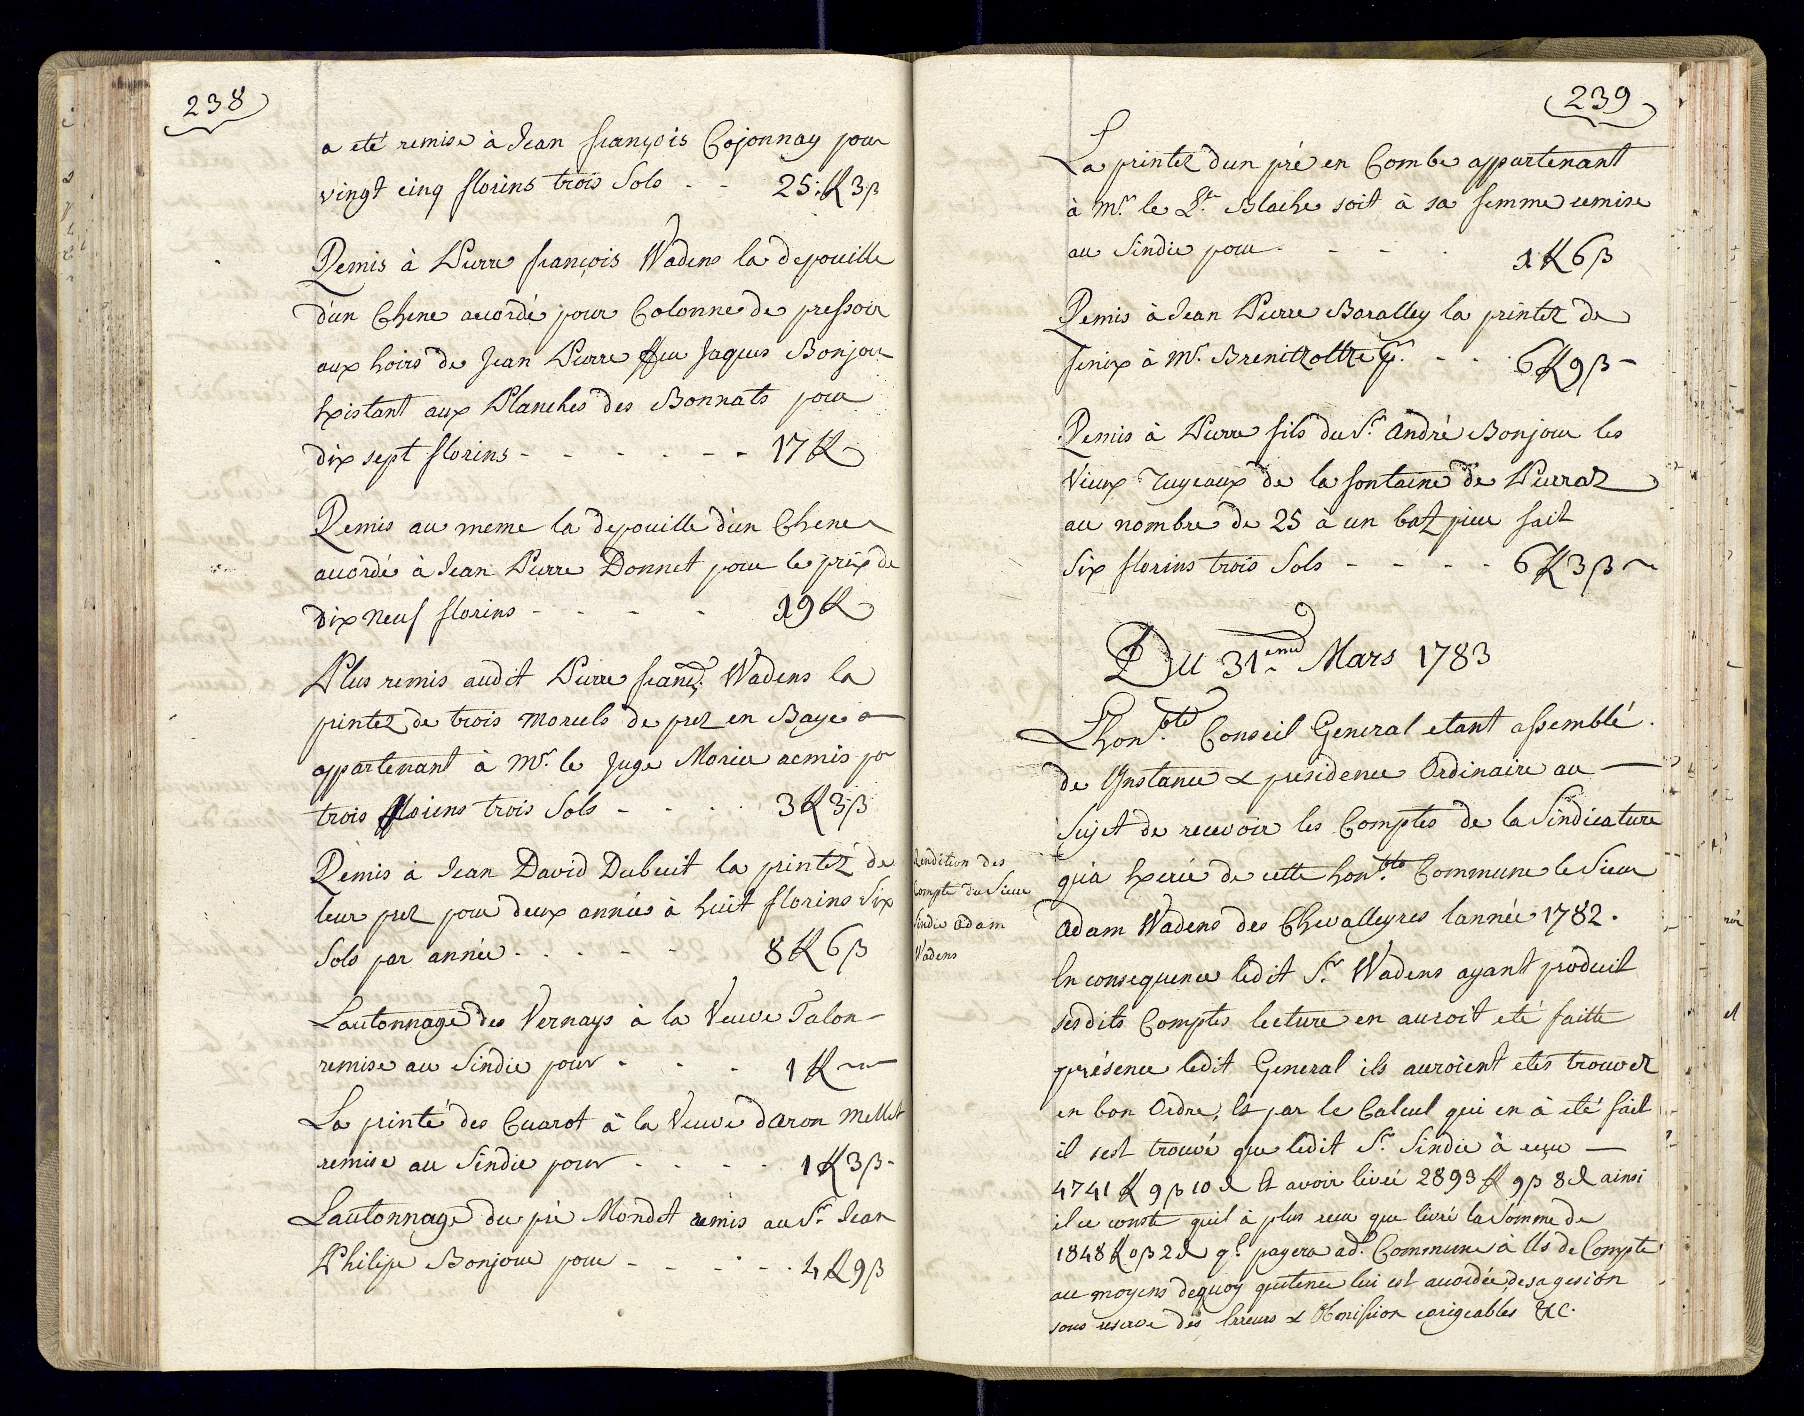 238
a eté remise à Jean françois Cojonnay pour
vingt cinq florins trois Sols - - 25 ff 3 ß
Remis à Pierre françois Wadens la depouille
d'un Chene accordé pour Colonne de pressoir
aux hoirs de Jean Pierre ffeu Jaques Bonjour
Existant aux Planches des Bonnats pour
dix sept florins - - - - - - 17 ff
Remis au meme la depouille d'un Chene
accordé à Jean Pierre Donnet pour le prix de
dix neuf florins - - - - 19 ff
Plus remis audit Pierre franç.s Wadens la
printez de trois morcels de prez en Baye
appartenant à Mr. le Juge Moriee remis pr
trois florins trois Sols - - - - 3 ff 3 ß
Remis à Jean David Dubuit la printéz de
leur prez pour deux année à huit florins Six
Sols par année - - - - - 8 ff 6 ß
Lautonnage des Vernays à la Veuve Talon
remise au Sindic pour - - - 1 ff
La printé des Cuarot à la Veuve daron Mellet
remise au Sindic pour - - - - 1 ff 3 ß
Lautonnage du pré Mondet remis au Sr. Jean
Philipe Bonjour pour - - - - - 4 ff 9 ß
239
La printez dun pré en Combe appartenant
à Mr. le Lt. Blache soit à sa femme remise
au Sindic pour - - - - 1 ff 6 ß
Remis à Jean Pierre Boralley la printéz de
fenix à Mr. - - 6 ff 9 ß
Remis à Pierre fils du Sr. André Bonjour les
Vieux Tuyeaux de la fontaine de Pierraz
au nombre de 25 à un batz piece fait
Six florins trois Sols - - - - 6 ff 3 ß
Du 31eme Mars 1783
Lhon.ble Conseil General etant assemblé
de Instance & presidence Ordinaire au
Sujet de recevoir les Comptes de la Sindicature
Rendition des
Compte du Sieur
Sindic Adam
Wadens
qu'à Exercé de cette hon.ble Commune le Sieur
Adam Wadens des Chevalleyres lannée 1782.
En consequence ledit Sr. Wadens ayant produit
sesdits Comptes lecture en auroit eté faitte
présence ledit General ils auroient etés trouvez
en bon Ordre, Et par le Calcul qui en à eté fait
il sest trouvé que ledit Sr. Sindic à reçu
4741 ff 9 ß 10 d Et avoir livré 2893 ff 9 ß 8 d ainsi
il ce conste quil à plus recu que livré la Somme de
1848 ff 0 ß 2 d ql. payera ad. Commune à Us de Compte
au moyens dequoy quitence lui est accordée, de sa gesion
sous reserve des Erreurs & Omission corigeables &c.